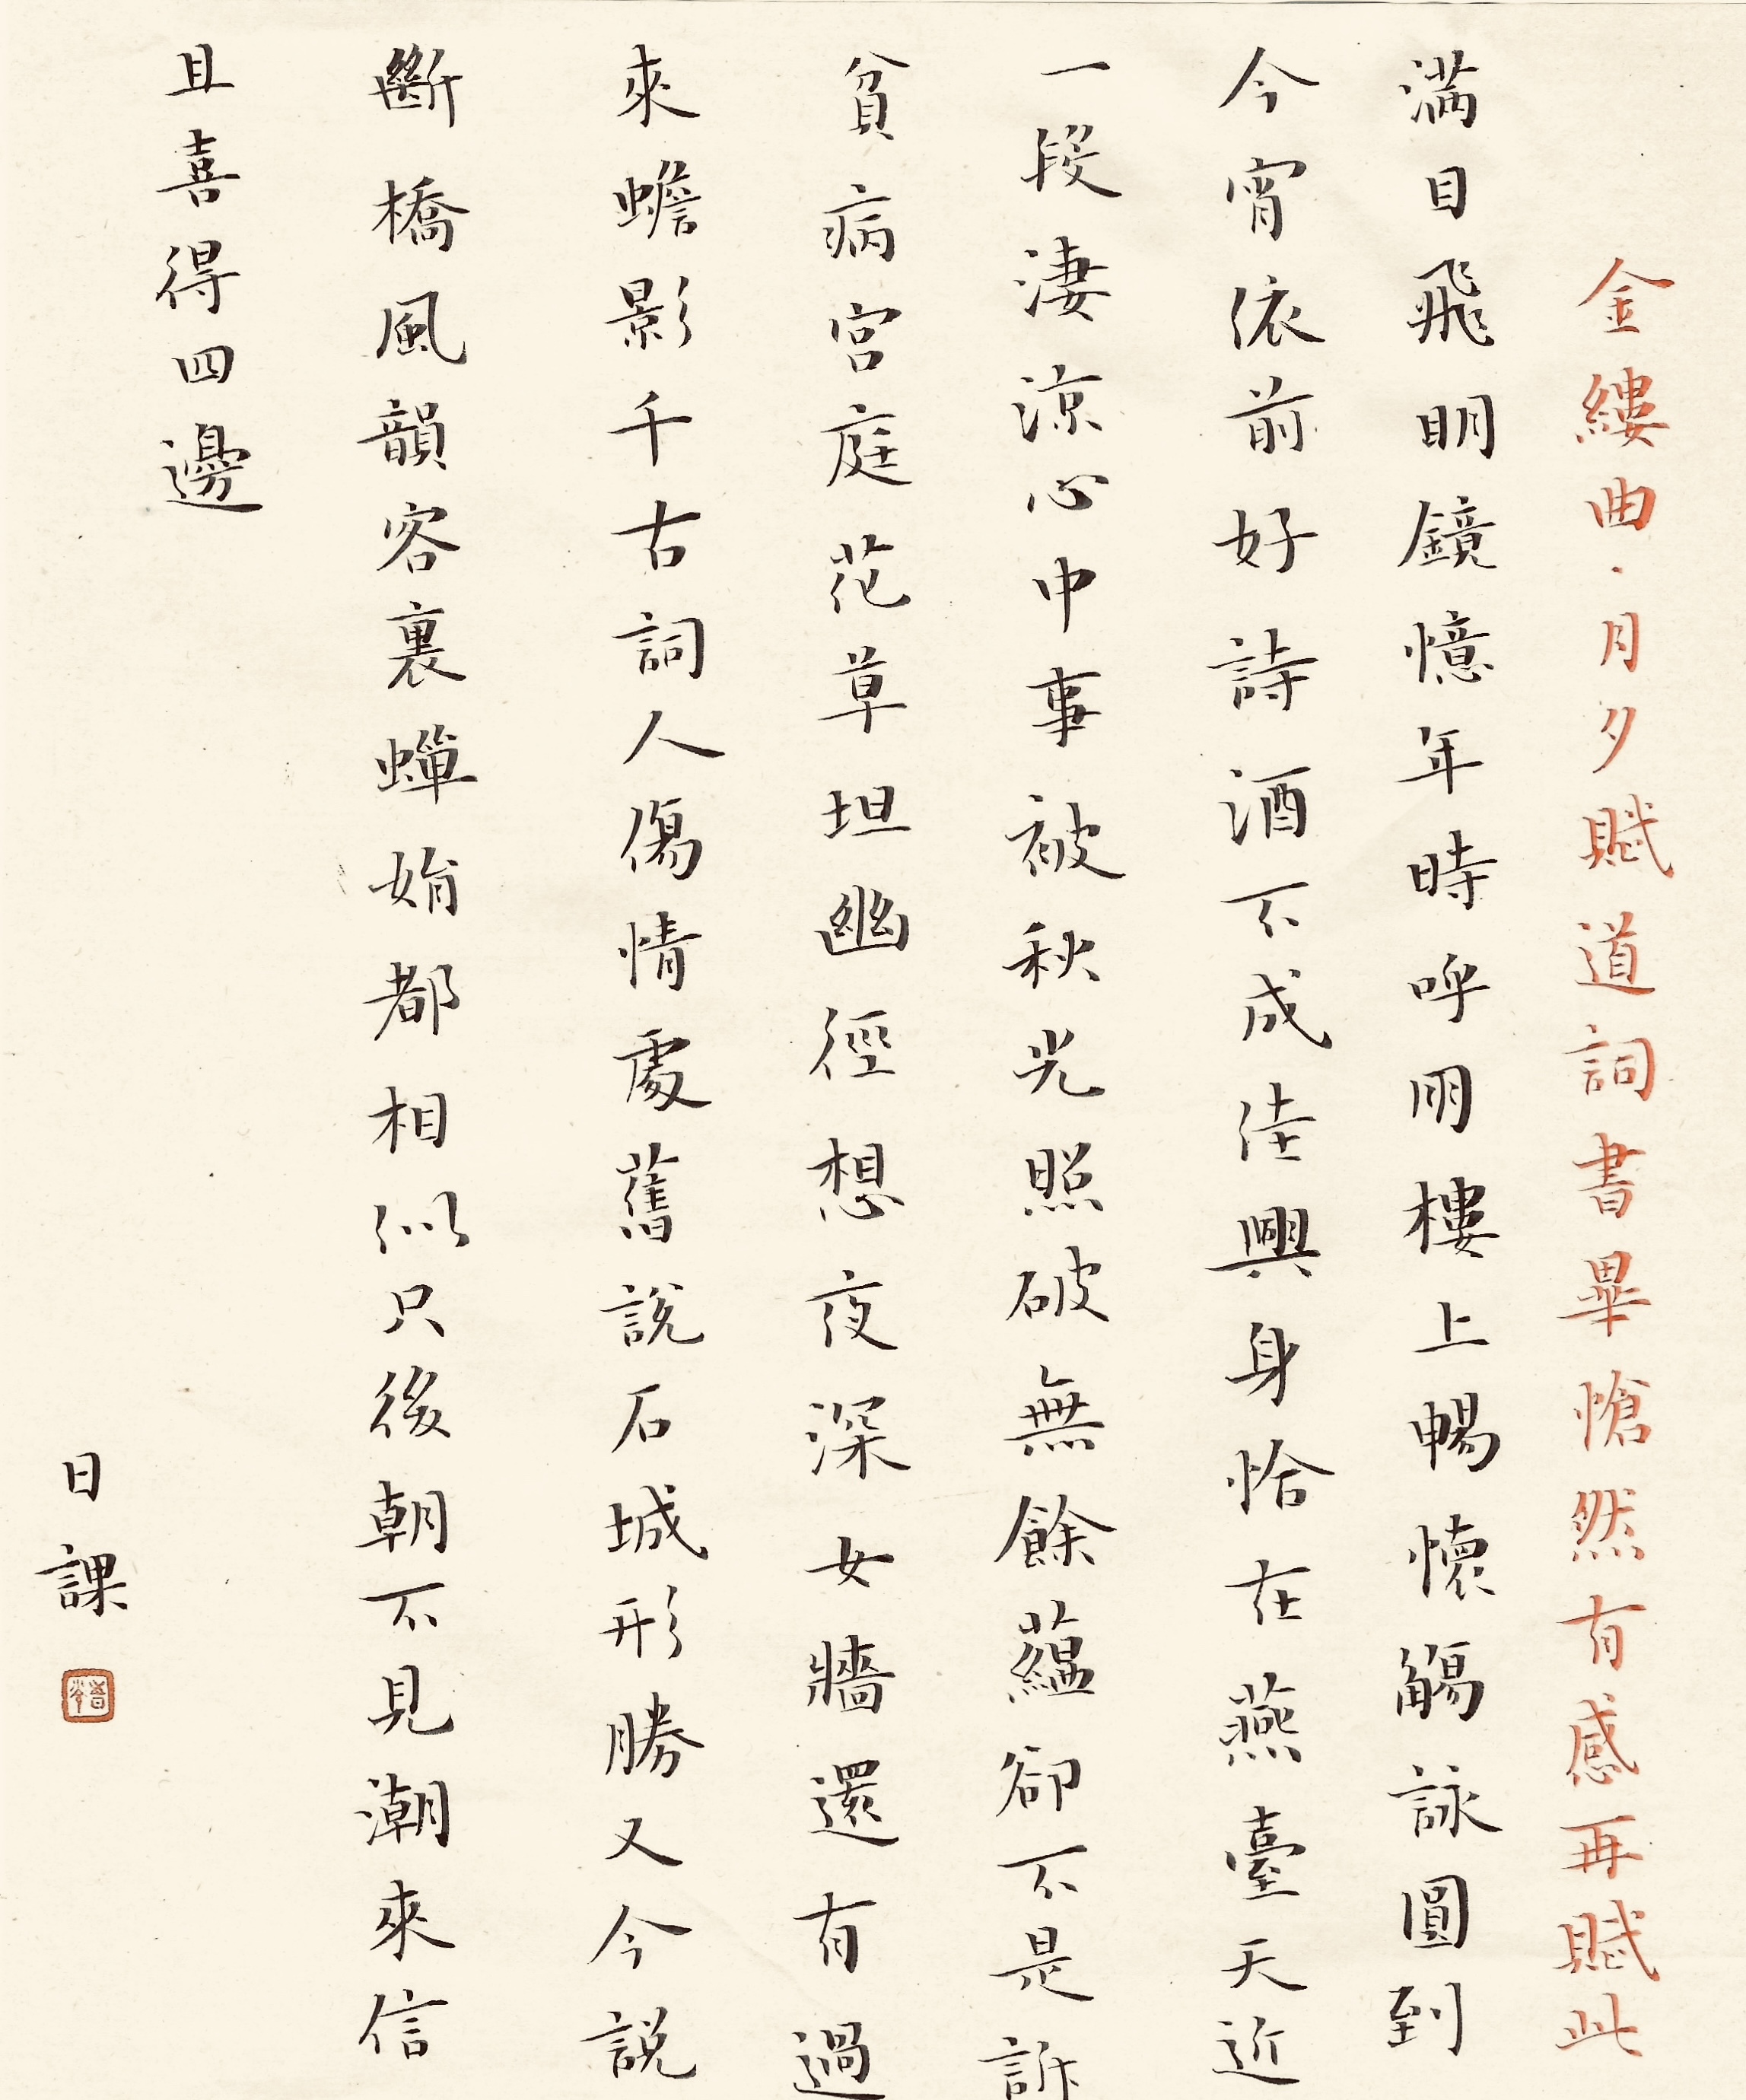 金縷曲·月夕賦道詞書畢愴然有感再賦此
滿目飛明鏡憶年時呼朋樓上暢懷觴詠圓到
今宵依前好詩酒不成佳興身恰在燕臺天近
一段淒涼心中事被秋光照破無餘蘊卻不是訴
貧病宮庭花草坦幽徑想夜深女牆還有過
來蟾影千古詞人傷情處舊說石城形勝又今說
斷橋風韻客裏蟬娟都相似只後朝不見潮來信
且喜得四邊
日課